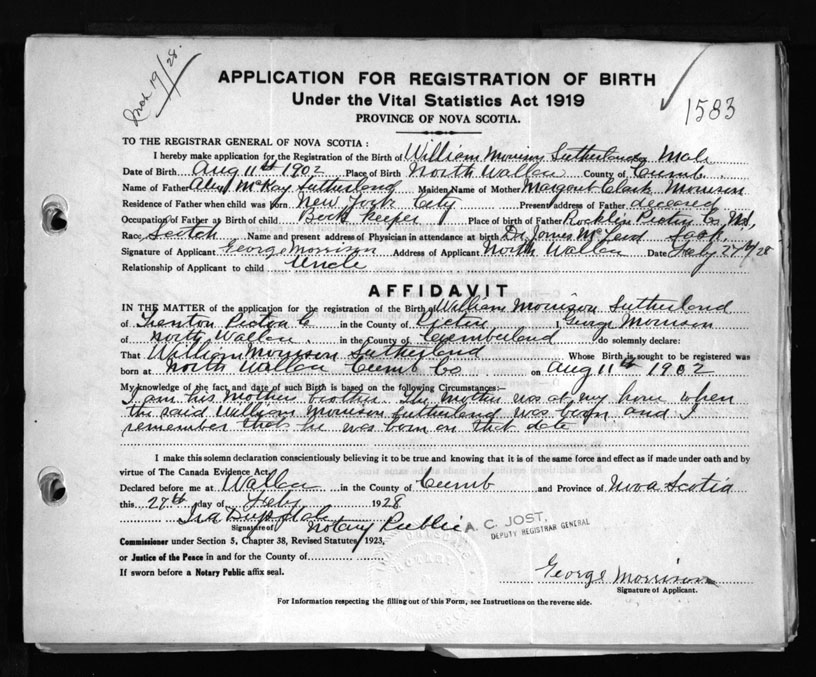 Mch 19/28.
APPLICATION FOR REGISTRATION OF BIRTH
Under the Vital Statistics Act 1919
PROVINCE OF NOVA SCOTIA.
1583
TO THE REGISTRAR GENERAL OF NOVA SCOTIA :
I hereby make application for the Registration of the Birth of William Morrison Sutherland Male
Date of Birth Aug 11th 1902 Place of Birth North Wallace County of Cumb.
Name of Father McKay Sutherland Maiden Name of Mother Margaret Clark Morrison
Residence of Father when child was born New York City Present address of Father deceased
Occupation of Father at Birth of child Book keeper Place of birth of Father Rocklin Pictou Co N.S.,
Race Scotch Name and present address of Physician in attendance at birth Dr James McLeod
Signature of Applicant George Morrison Address of Applicant North Wallace Date Feby 27th/28
Relationship of Applicant to child Uncle
AFFIDAVIT
IN THE MATTER of the application for the registration of the Birth of William Morrison Sutherland
of Trenton Pictou Co in the County of Pictou I George Morrison
of North Wallace in the County of Cumberland do solemnly declare:
That William Morrison Sutherland Whose Birth is sought to be registered was
born at North Wallace Cumb Co on Aug 11th 1902
My knowledge of the fact and date of such Birth is based on the following Circumstances:—
I am his mother brother. The mother was at my home when
the said William Morrison Sutherland was born and I
remember that he was born on that date
I make this solemn declaration conscientiously believing it to be true and knowing that it is of the same force and effect as if made under oath and by
virtue of The Canada Evidence Act.
Declared before me at Wallace in the County of Cumb and Province of Nova Scotia
this 27th day of Feby 1928
Ira
Signature of Notary Public
A. C. JOST,
DEPUTY REGISTRAR GENERAL
Commissioner under Section 5, Chapter 38, Revised Statutes 1923,
or Justice of the Peace in and for the County of
If sworn before a Notary Public affix seal.
George Morrison
Signature of Applicant.
For Information respecting the filling out of this Form, see Instructions on the reverse side.